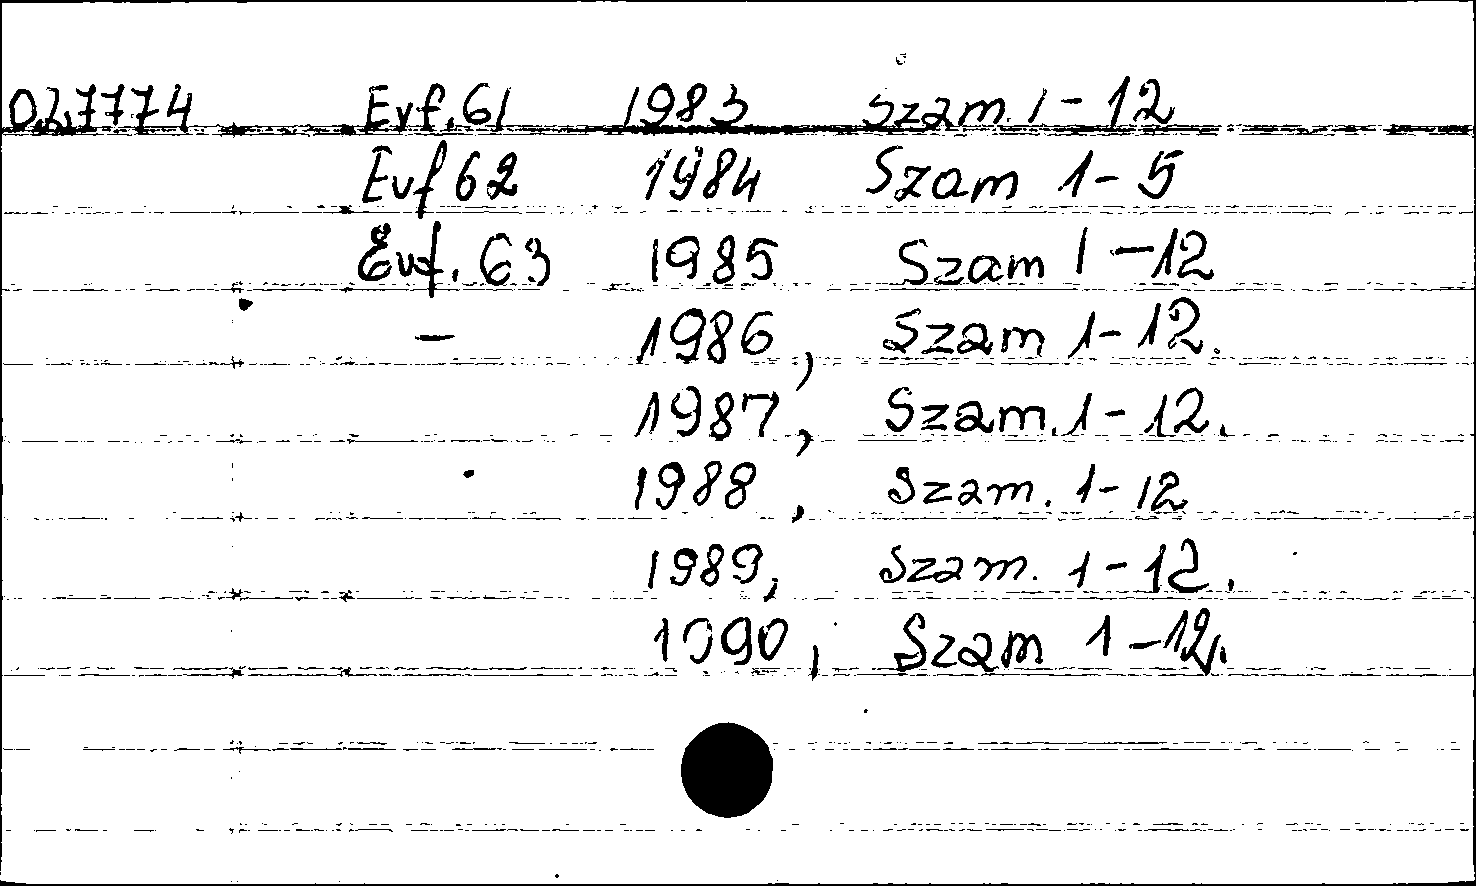 D2.7774 Evf. 61 1983 Szam. 1-12
Evf 62 1984 Szam 1-5
Évf. 63 1985 Szam 1-12
- 1986, Szam 1-12.
1987, Szam. 1-12.
1988, Szam. 1-12
1989, Szam. 1-12.
1990, Szam 1-12.